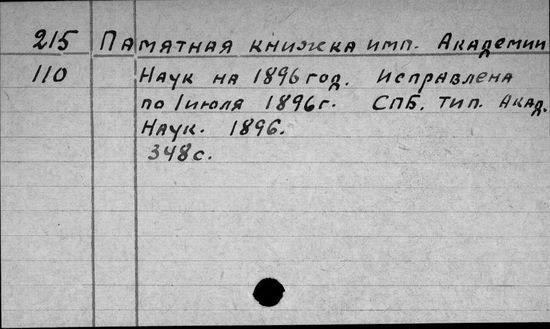 215 Памятная книжка имп. Академии
110 Наук на 1896 год. Исправлена
по 1 июля 1896 г. СПБ. тип. Акад.
Наук. 1896.
348 с.